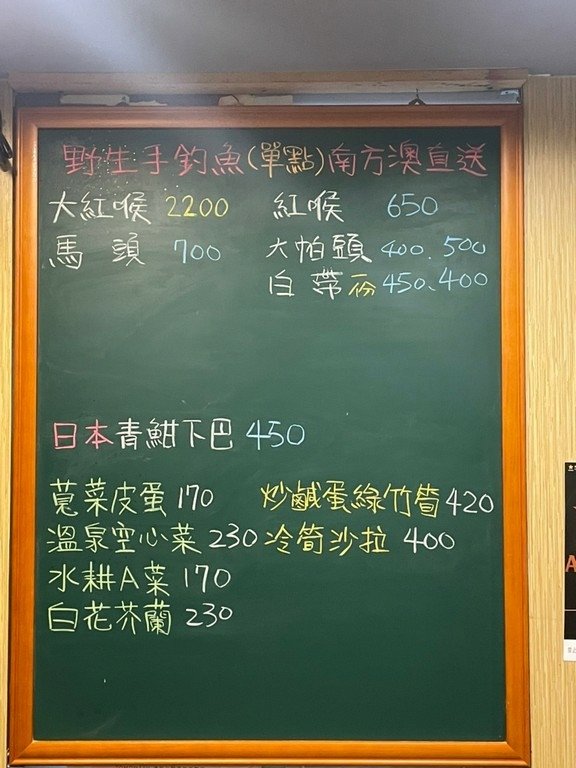 野生手釣魚(單點)南方澳直送
大紅喉 2200 紅喉 650
馬頭 700 大帕頭 400、500
白帶 一份 450、400
日本青魽下巴 450
莧菜皮蛋 170 炒鹹蛋綠竹筍 420
溫泉空心菜 230 冷筍沙拉 400
水耕A菜 170
白花芥蘭 230